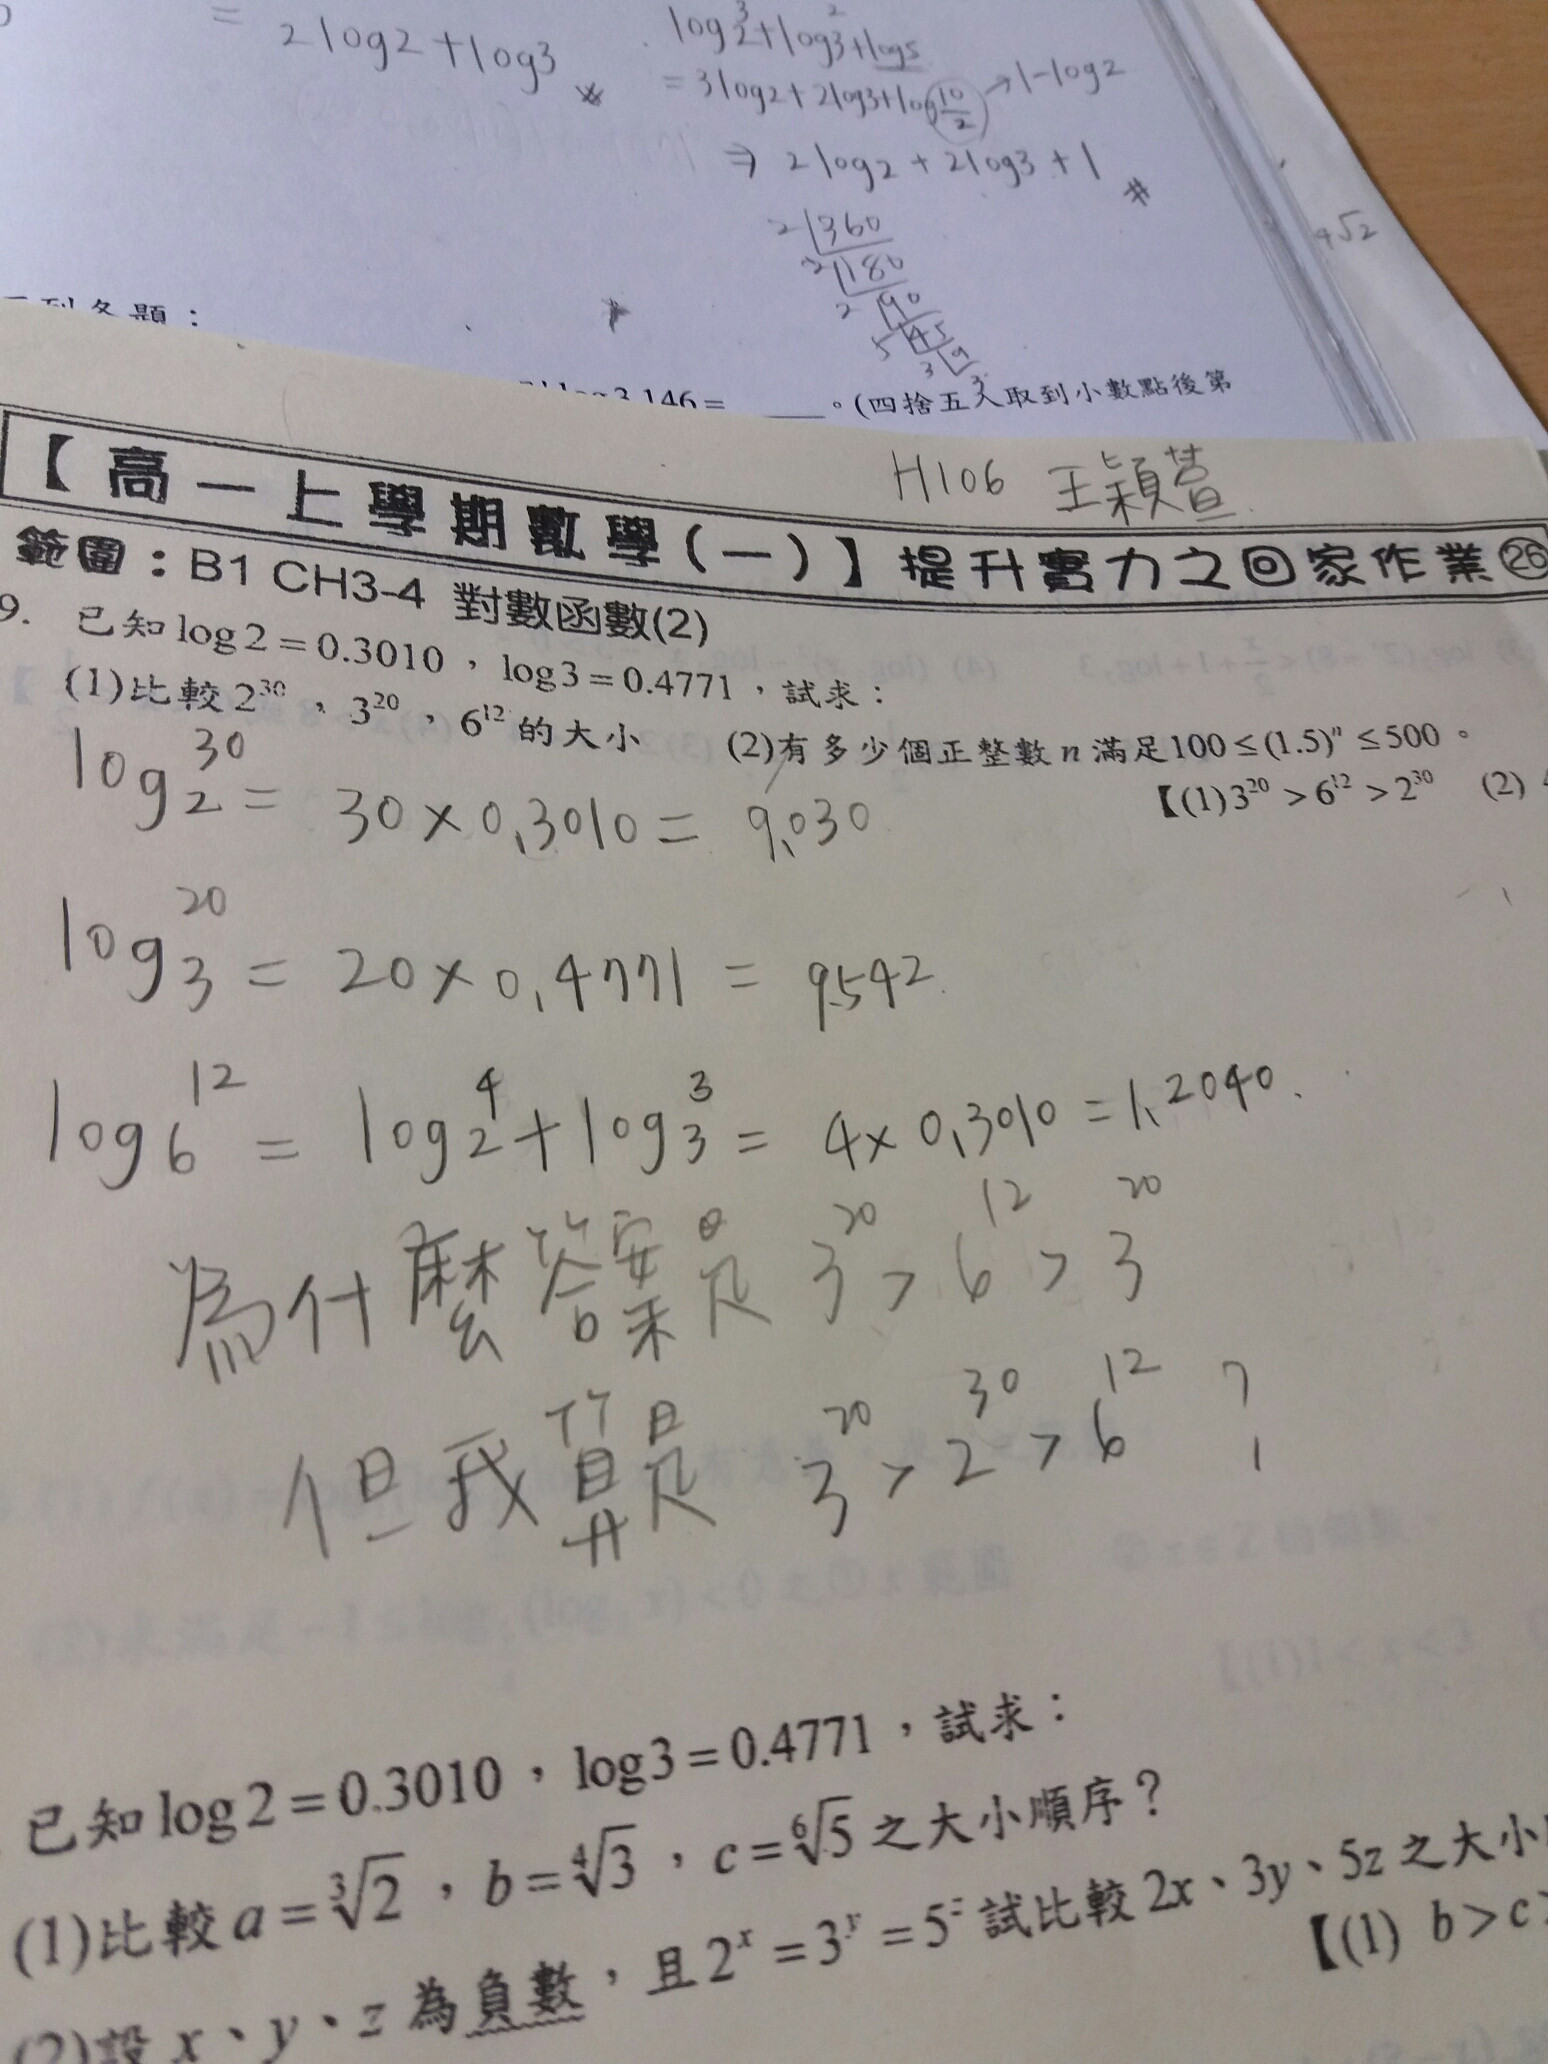 = 2log2+log3
log2³+log3²+log5
=3log2+2log3+log10/2 → 1-log2
⇒ 2log2+2log3+1
#
2 360
2 180
2 90
5 45
3 9
3
4√2
各題：
3.146=____。(四捨五入取到小數點後第
H106 王穎萱
【高一上學期數學(一)】提升實力之回家作業㉖
範圍：B1 CH3-4 對數函數(2)
9. 已知log2=0.3010，log3=0.4771，試求：
(1)比較2³⁰，3²⁰，6¹²的大小 (2)有多少個正整數n滿足100≤(1.5)ⁿ≤500。
【(1)3²⁰>6¹²>2³⁰ (2)
log2³⁰= 30×0.3010= 9.030
log3²⁰= 20×0.4771= 9.542
log6¹²= log2⁴+log3³= 4×0.3010=1.2040.
為什麼答案是 3²⁰>6¹²>3²⁰
但我算是 3²⁰>2³⁰>6¹² ?
已知log2=0.3010，log3=0.4771，試求：
(1)比較a=³√2，b=⁴√3，c=⁶√5之大小順序？
(2)設x、y、z為負數，且2ˣ=3ʸ=5ᶻ試比較2x、3y、5z之大小
【(1) b>c>